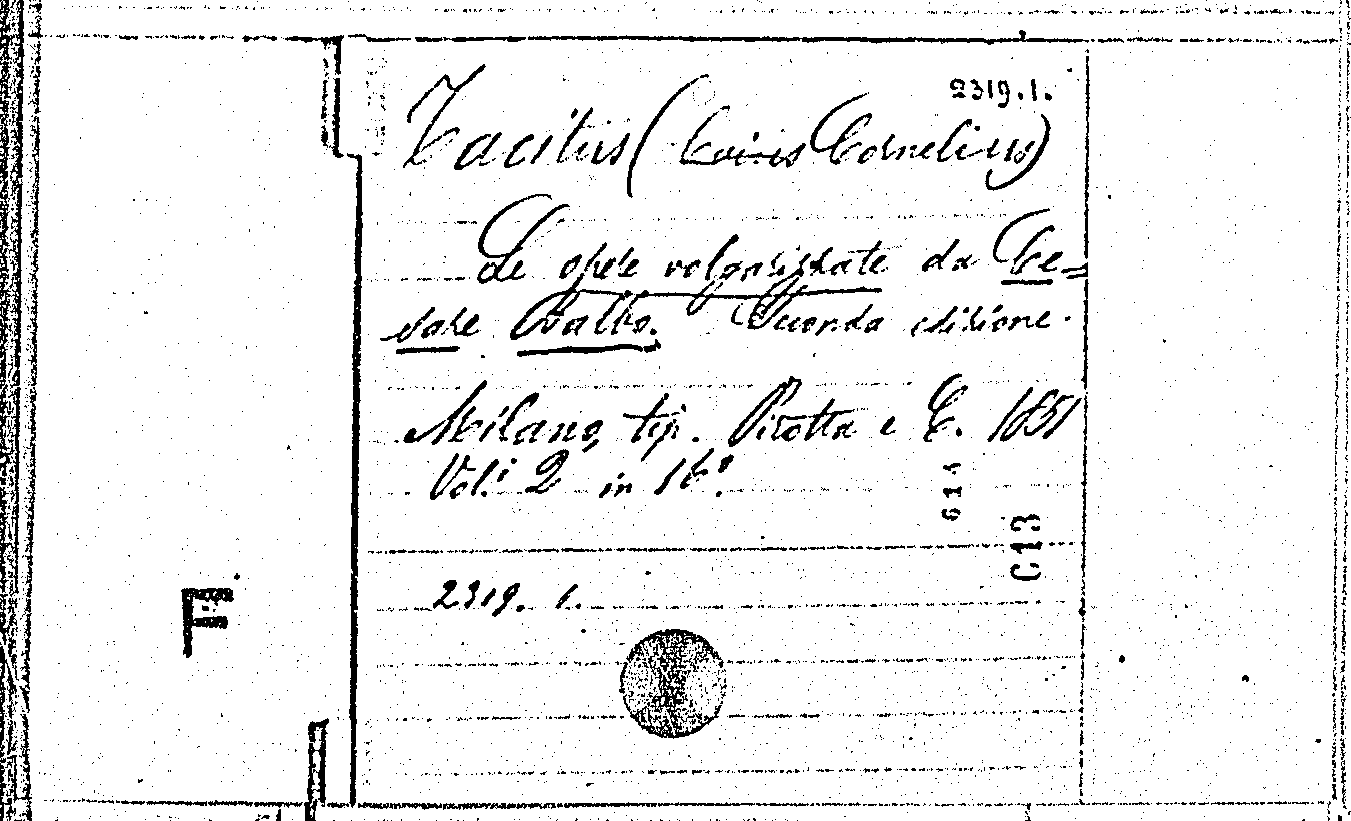 2319.1.
Tacitus (Caius Cornelius)
Le opere volgarizzate da Ce=
sare Balbo. Seconda edizione.
Milano, tip. Pirotta e C. 1851
Vol.i 2 in 16°.
614
C13
2319. 1.
F